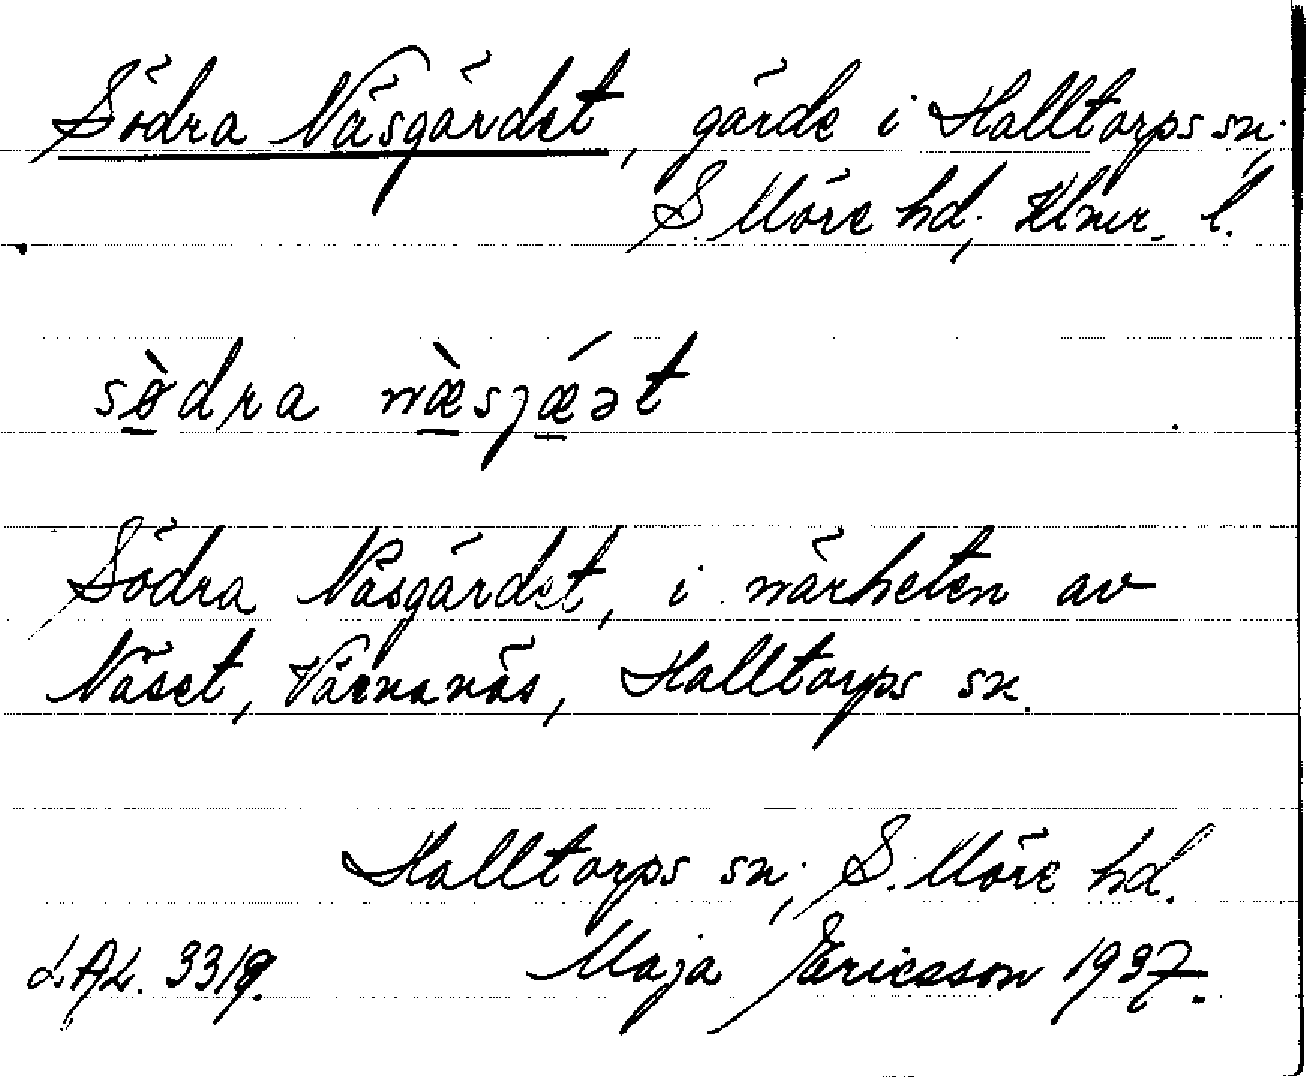 Södra Näsgärdet, gärde i Halltorps sn.,
S. Möre hd., Klmr. l.
sø̀dra næ̀sjǽət
Södra Näsgärdet, i närheten av
Näset, Värnanäs, Halltorps sn.
Halltorps sn., S. Möre hd.
L.A.L. 3319. Maja Ericsson 1937.